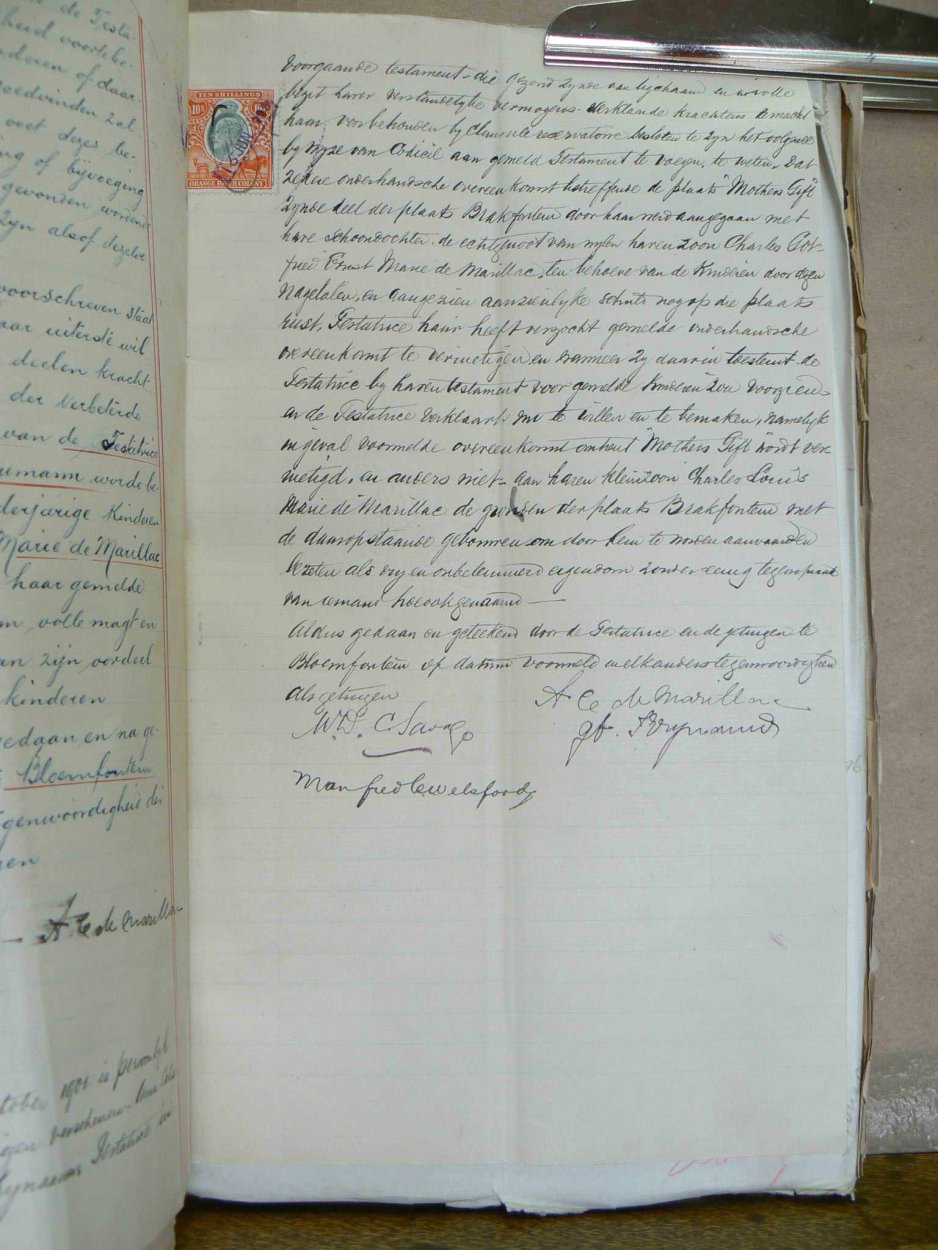 de Testa-
heid voorbe-
deren of daar-
goedvinden zal
voet dezes be-
ng of bijvoeging
gevonden worden
zijn alsof dezelve
voorschreven staat
haar uiterste wil
deelen kracht
der Verbeterde
van de Testatrice
umann worde be-
derjarige kinderen
Marie de Marillac
haar gemelde
volle magt en
an zijn oordeel
kinderen
gedaan en na ge-
Bloemfontein
genwoordigheid der
en
A C de Marillac
tober 1901 is persoonlijk
igen verschenen
Testatrice
TEN SHILLINGS
10s
ORANGE RIVER COLONY
voorgaande testament die gezond zynde van lighaam en in volle
bezit harer verstandelyke vermogens verklaarde krachtens de macht
haar voorbehouden by clausule reservatoire besloten te zyn het volgende
by wyze van Codicil aan gemeld Testament te voegen, te weten, dat
zekere onderhandsche overeenkomst betreffende de plaats "Mothers Gift"
zynde deel der plaats Brakfontein door haar werd aangegaan met
hare schoondochter de echtgenoot van wylen haren zoon Charles Got-
fried Ernst Marie de Marillac, ten behoeve van de kinderen door dezen
Nagelaten, en aangezien aanzienlyke schuld nog op die plaats
rust, Testatrice haar heeft verzocht gemelde onderhandsche
overeenkomst te vernietigen, en wanneer zy daarin toestemt de
Testatrice by haren testament voor gemelde kinderen zou voorzien
en de Testatrice verklaart nu te willen en te bemaken, namelyk
in geval voormelde overeenkomst omtrent "Mothers Gift" wordt ver-
nietigd, en anders niet - aan haren kleinzoon Charles Louis
Marie de Marillac de gronden der plaats Brakfontein met
de daaropstaande gebouwen om door hem te worden aanvaarden
bezeten als vry en onbelemmerd eigendom zonder eenig tegenspraak
van iemand hoe ook genaamd —
Aldus gedaan en geteekend door de Testatrice en de getuigen te
Bloemfontein op datum voormeld in elkanders tegenwoordigheid
Als getuigen
A C de Marillac
W. D. C. Savage
Manfred C Welsford